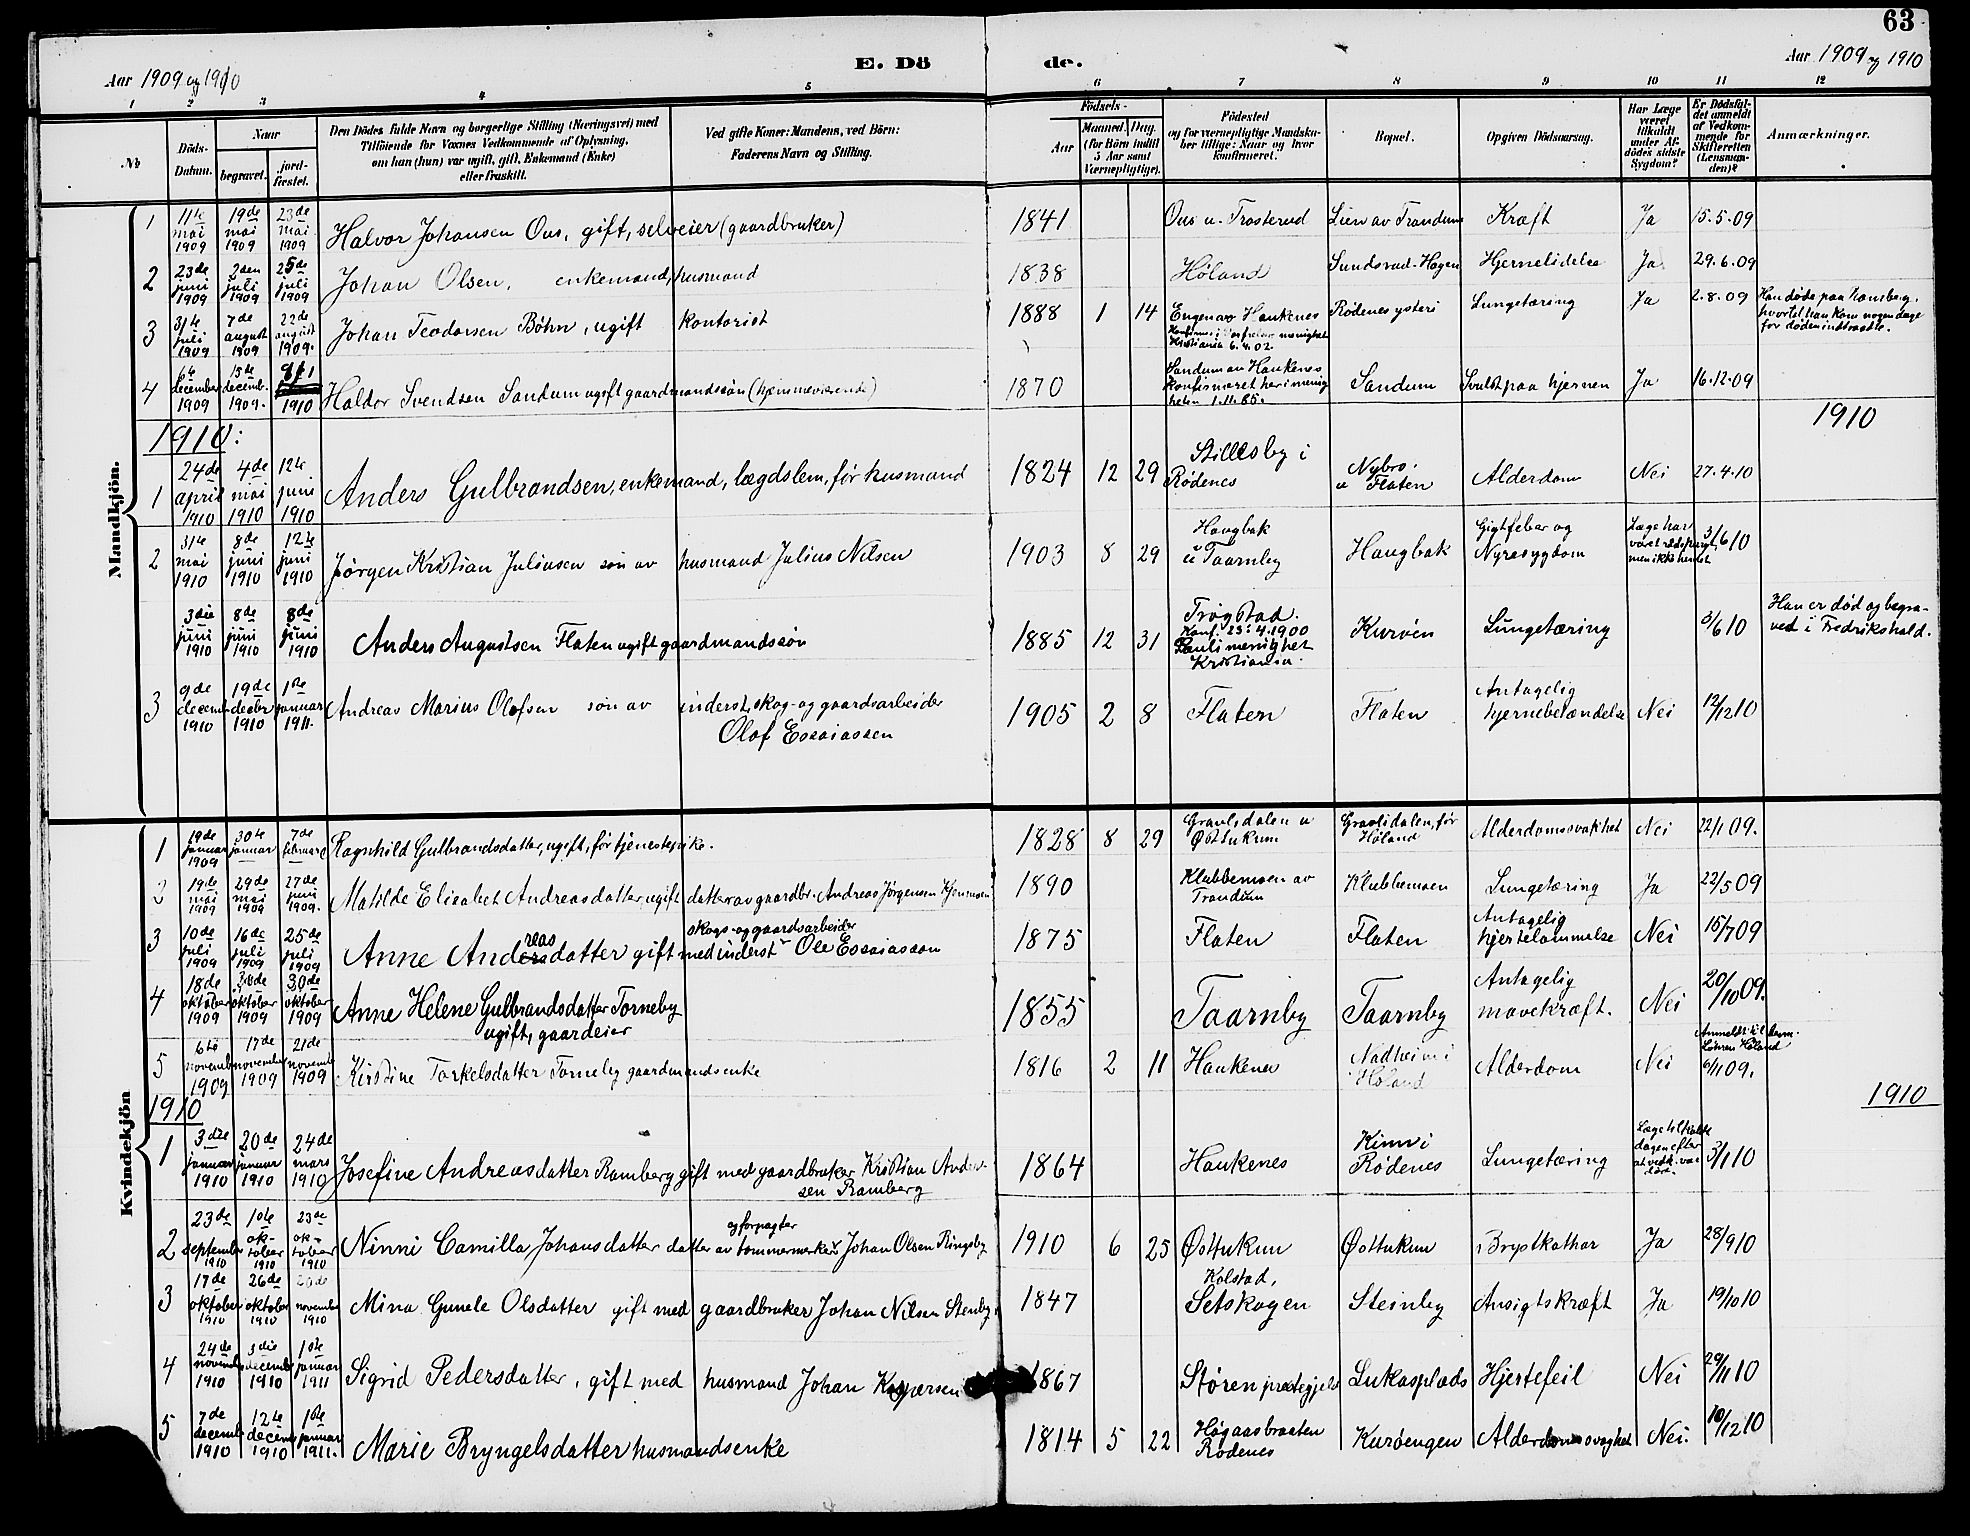 63
Aar 1909 og 1910
E. Dö
de.
Aar 1909 og 1910
1 2 3 4 5 6 7 8 9 10 11 12
No
Döds-Datum.
Naar
begravet.
jord-fæstet.
Den Dödes fulde Navn og borgerlige Stilling (Næringsvei) med
Tilföiende for Voxnes Vedkommende af Oplysning,
om han (hun) var ugift, gift, Enkemand (Enke)
eller fraskilt.
Ved gifte Koner: Mandens, ved Börn:
Faderens Navn og Stilling.
Födsels-
Aar
Maaned. Dag.
(for Börn indtil
5 Aar samt
Værnepligtige).
Födested
og for værnepligtige Mandska-
ber tillige: Naar og hvor
konfirmeret.
Bopæl.
Opgiven Dödsaarsag.
Har Læge
været
tilkaldt
under Af-
dödes sidste
Sygdom?
Er Dödsfal-
det anmeldt
af Vedkom-
mende for
Skifteretten
(Lensman-
den)?
Anmærkninger.
Mandkjön.
1 11te mai 1909 19de mai 1909 23de mai 1909 Halvor Johansen Ous, gift, selveier (gaardbruker) 1841 Ous u. Trosterud Lien av Trandum Kræft Ja 15.5.09
2 23de juni 1909 2den juli 1909 25de juli 1909 Johan Olsen, enkemand, husmand 1838 Høland Sundsrud-Hagen Hjertelidelse Ja 29.6.09
3 31te juli 1909 7de august 1909 22de august 1909. Johan Teodorsen Böhn, ugift kontorist 1888 1 14 Engen av Haukenes Rödenes ysteri Lungetæring Ja 2.8.09 Han døde paa Konsberg,
hvortil han kom nogen dage
før döden indtraadte.
Kristiania 6.4.02.
4 6te december 1909 15de decemb. 1909. 9/1 1910 Haldor Svendsen Sandum ugift gaardmandssön (hjemmeværende) 1870 Sandum av Haukenes
Konfirmeret her i menig
heten 1.11.85. Sandum Svulst paa hjernen Ja 16.12.09
1910:
1910
1 24de april 1910 4de mai 1910 12te juni 1910 Anders Gulbrandsen, enkemand, lægdslem, før husmand 1824 12 29 Stillesby i
Rödenes Nybro.
u Flaten Alderdom Nei 27.4.10
2 31te mai 1910 8de juni 1910 12te juni 1910 Jørgen Kristian Juliussen søn av husmand Julius Nilsen 1903 8 29 Haugbak
u Taarnby Haugbak Gigtfeber og
Nyresygdom Læge har
været raadspurgt,
men ikke hentet 3/6 10
3die juni 1910 8de juni 1910 8de juni 1910 Anders Augustsen Flaten ugift gaardmandssön 1885 12 31 Trøgstad.
Konf. 23.4.1900
Pauli menighet
Kristiania. Kuröen Lungetæring 3/6 10 Han er död og begra-
vet i Fredrikshald.
3 9de decemb 1910 19de decbr 1910 1ste januar 1911. Andreas Marius Olofsen søn av inderst, skog- og gaardsarbeider
Olof Essaiassen 1905 2 8 Flaten Flaten Antagelig
hjernebetændelse Nei 12/12 10
Kvindekjön
1 19de januar 1909 30te januar 7de februar Ragnhild Gulbrandsdatter, ugift, för tjenestepike. 1828 8 29 Gravlidalen u
Østtukun Gravlidalen, før
Høland Alderdomssvakhet Nei 22/1 09.
2 19de mai 1909 29de mai 1909 27de juni 1909. Matilde Elisabet Andreasdatter ugift datter av gaardbr. Andreas Jørgensen Kjensmoen 1890 Klubbemoen av
Trandum Klubbemoen Lungetæring Ja 22/5 09
3 10de juli 1909 16de juli 1909 25de juli 1909 Anne Andreasdatter gift med inderst skogs- og gaardsarbeider Ole Essaiasson 1875 Flaten Flaten Antagelig
hjertelammelse Nei 15/7 09
4 18de oktober 1909 30de oktober 1909 30de oktober 1909 Anne Helene Gulbrandsdatter Torneby
ugift, gaardeier 1855 Taarnby Taarnby Antagelig
mavekræft. Nei 20/10 09.
5 6te november 1909 17de november 1909 21de novemb 1909 Kirstine Torkelsdatter Torneby gaardmandsenke 1816 2 11 Haukenes Nadheim i
Høland Alderdom Nei Anmeldt til lensm.
Høland
6/11 09.
1910
1910
1 3die januar 1910 20de januar 1910 24de mars 1910 Josefine Andreasdatter Ramberg gift med gaardbruker Kristian Ander-
sen Ramberg 1864 Haukenes Kinn i
Rödenes Lungetæring Læge tilkaldt
dagen efter
at vedk. var
død. 3/1 10
2 23de september 1910 1ste oktober 1910 23de oktober 1910 Ninni Camilla Johansdatter datter av tømmermerker og forpagter Johan Olsen Ringsby 1910 6 25 Østtukun Østtukun Brystkathar Ja 28/9 10
3 17de oktober 1910 26de oktober 1910 20de november 1910 Mina Gunele Olsdatter gift med gaardbruker Johan Nilsen Stenby 1847 Kolstad,
Setskogen Steinby Ansigtskræft Ja 19/10 10
4 24de novemb 1910 3die decemb 1910 1ste januar 1911 Sigrid Pedersdatter, gift med husmand Johan Kaspersen 1867 Støren prestegjeld Lukasplads Hjertefeil Nei 29/11 10
5 7de decemb 1910 12te decemb 1910 1ste januar 1911. Marie Bryngelsdatter husmandsenke 1814 5 22 Høgaasbraaten
Rødenes Kuröengen Alderdomssvaghet Nei. 10/12 10